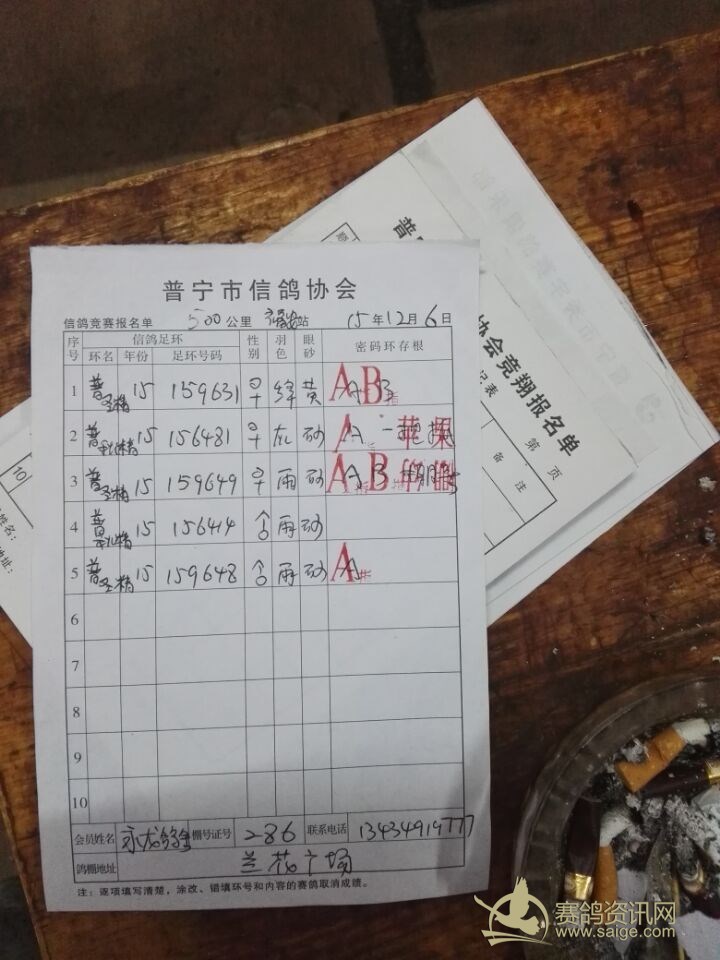 普宁市信鸽协会
信鸽竞赛报名单 500公里 站 15年12月6日
序号 信鸽足环 性别 羽色 眼砂 密码环存根
环名 年份 足环号码
1 普 15 159631 ♀ 绛 黄 A B
2 普 15 156481 ♀ 灰 砂 A 苹果
3 普 15 159649 ♀ 雨 砂 A B
4 普 15 156414 雨 砂
5 普 15 159648 雨 砂 A
6
7
8
9
10
会员姓名 永龙鸽舍 棚号证号 286 联系电话 13434919777
鸽棚地址 兰花广场
注：逐项填写清楚，涂改、错填环号和内容的赛鸽取消成绩。
普
协会竞翔报名单
记表
第 页
备注
10
姓名：
地址：
赛鸽资讯网
www.saige.com